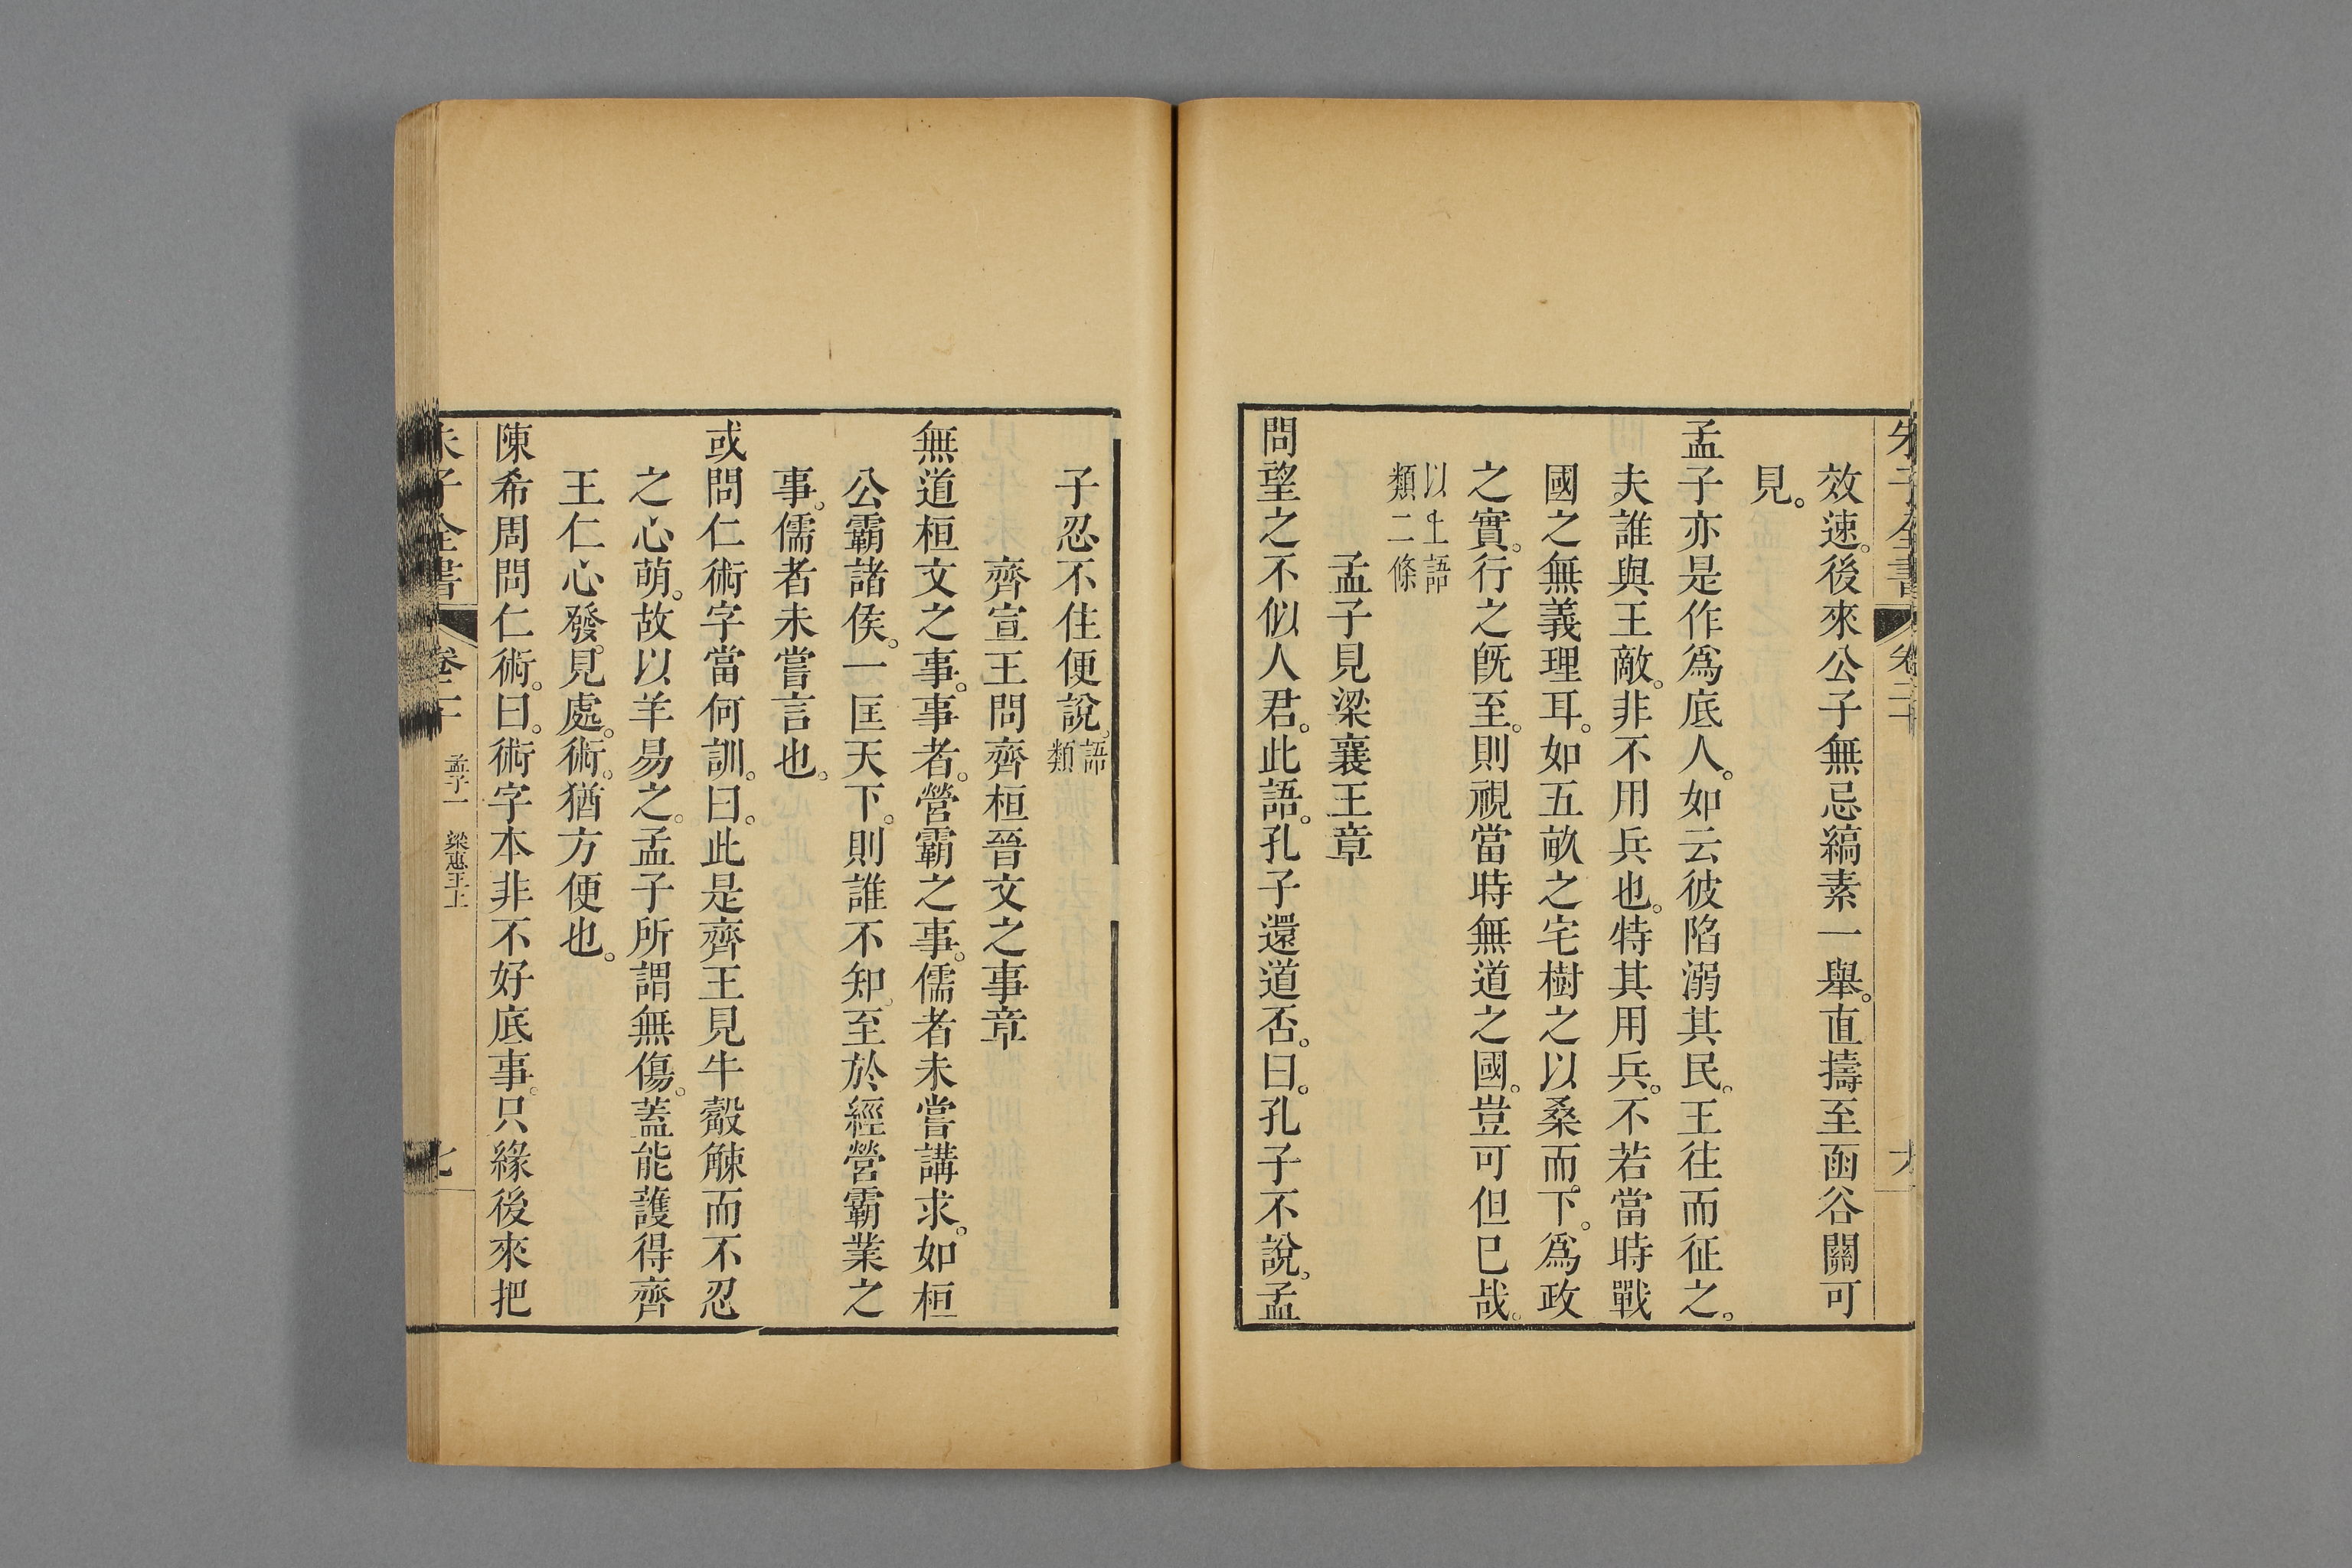 朱子全書 卷二十
效速。後來公子無忌縞素一舉。直擣至函谷關可
見。
孟子亦是作爲底人。如云彼陷溺其民。王往而征之。
夫誰與王敵。非不用兵也。特其用兵。不若當時戰
國之無義理耳。如五畝之宅樹之以桑而下。爲政
之實。行之旣至。則視當時無道之國。豈可但已哉。
以上語
類二條
孟子見梁襄王章
問望之不似人君。此語。孔子還道否。曰。孔子不說。孟
子忍不住便說。語
類
齊宣王問齊桓晉文之事章
無道桓文之事。事者。營霸之事。儒者未嘗講求。如桓
公霸諸侯。一匡天下。則誰不知。至於經營霸業之
事。儒者未嘗言也。
或問仁術字當何訓。曰。此是齊王見牛觳觫而不忍
之心萌。故以羊易之。孟子所謂無傷。蓋能護得齊
王仁心發。見處。術。猶方便也。
陳希周問仁術。曰。術字本非不好底事。只緣後來把
朱子全書 卷二十 孟子一 梁惠王上 七